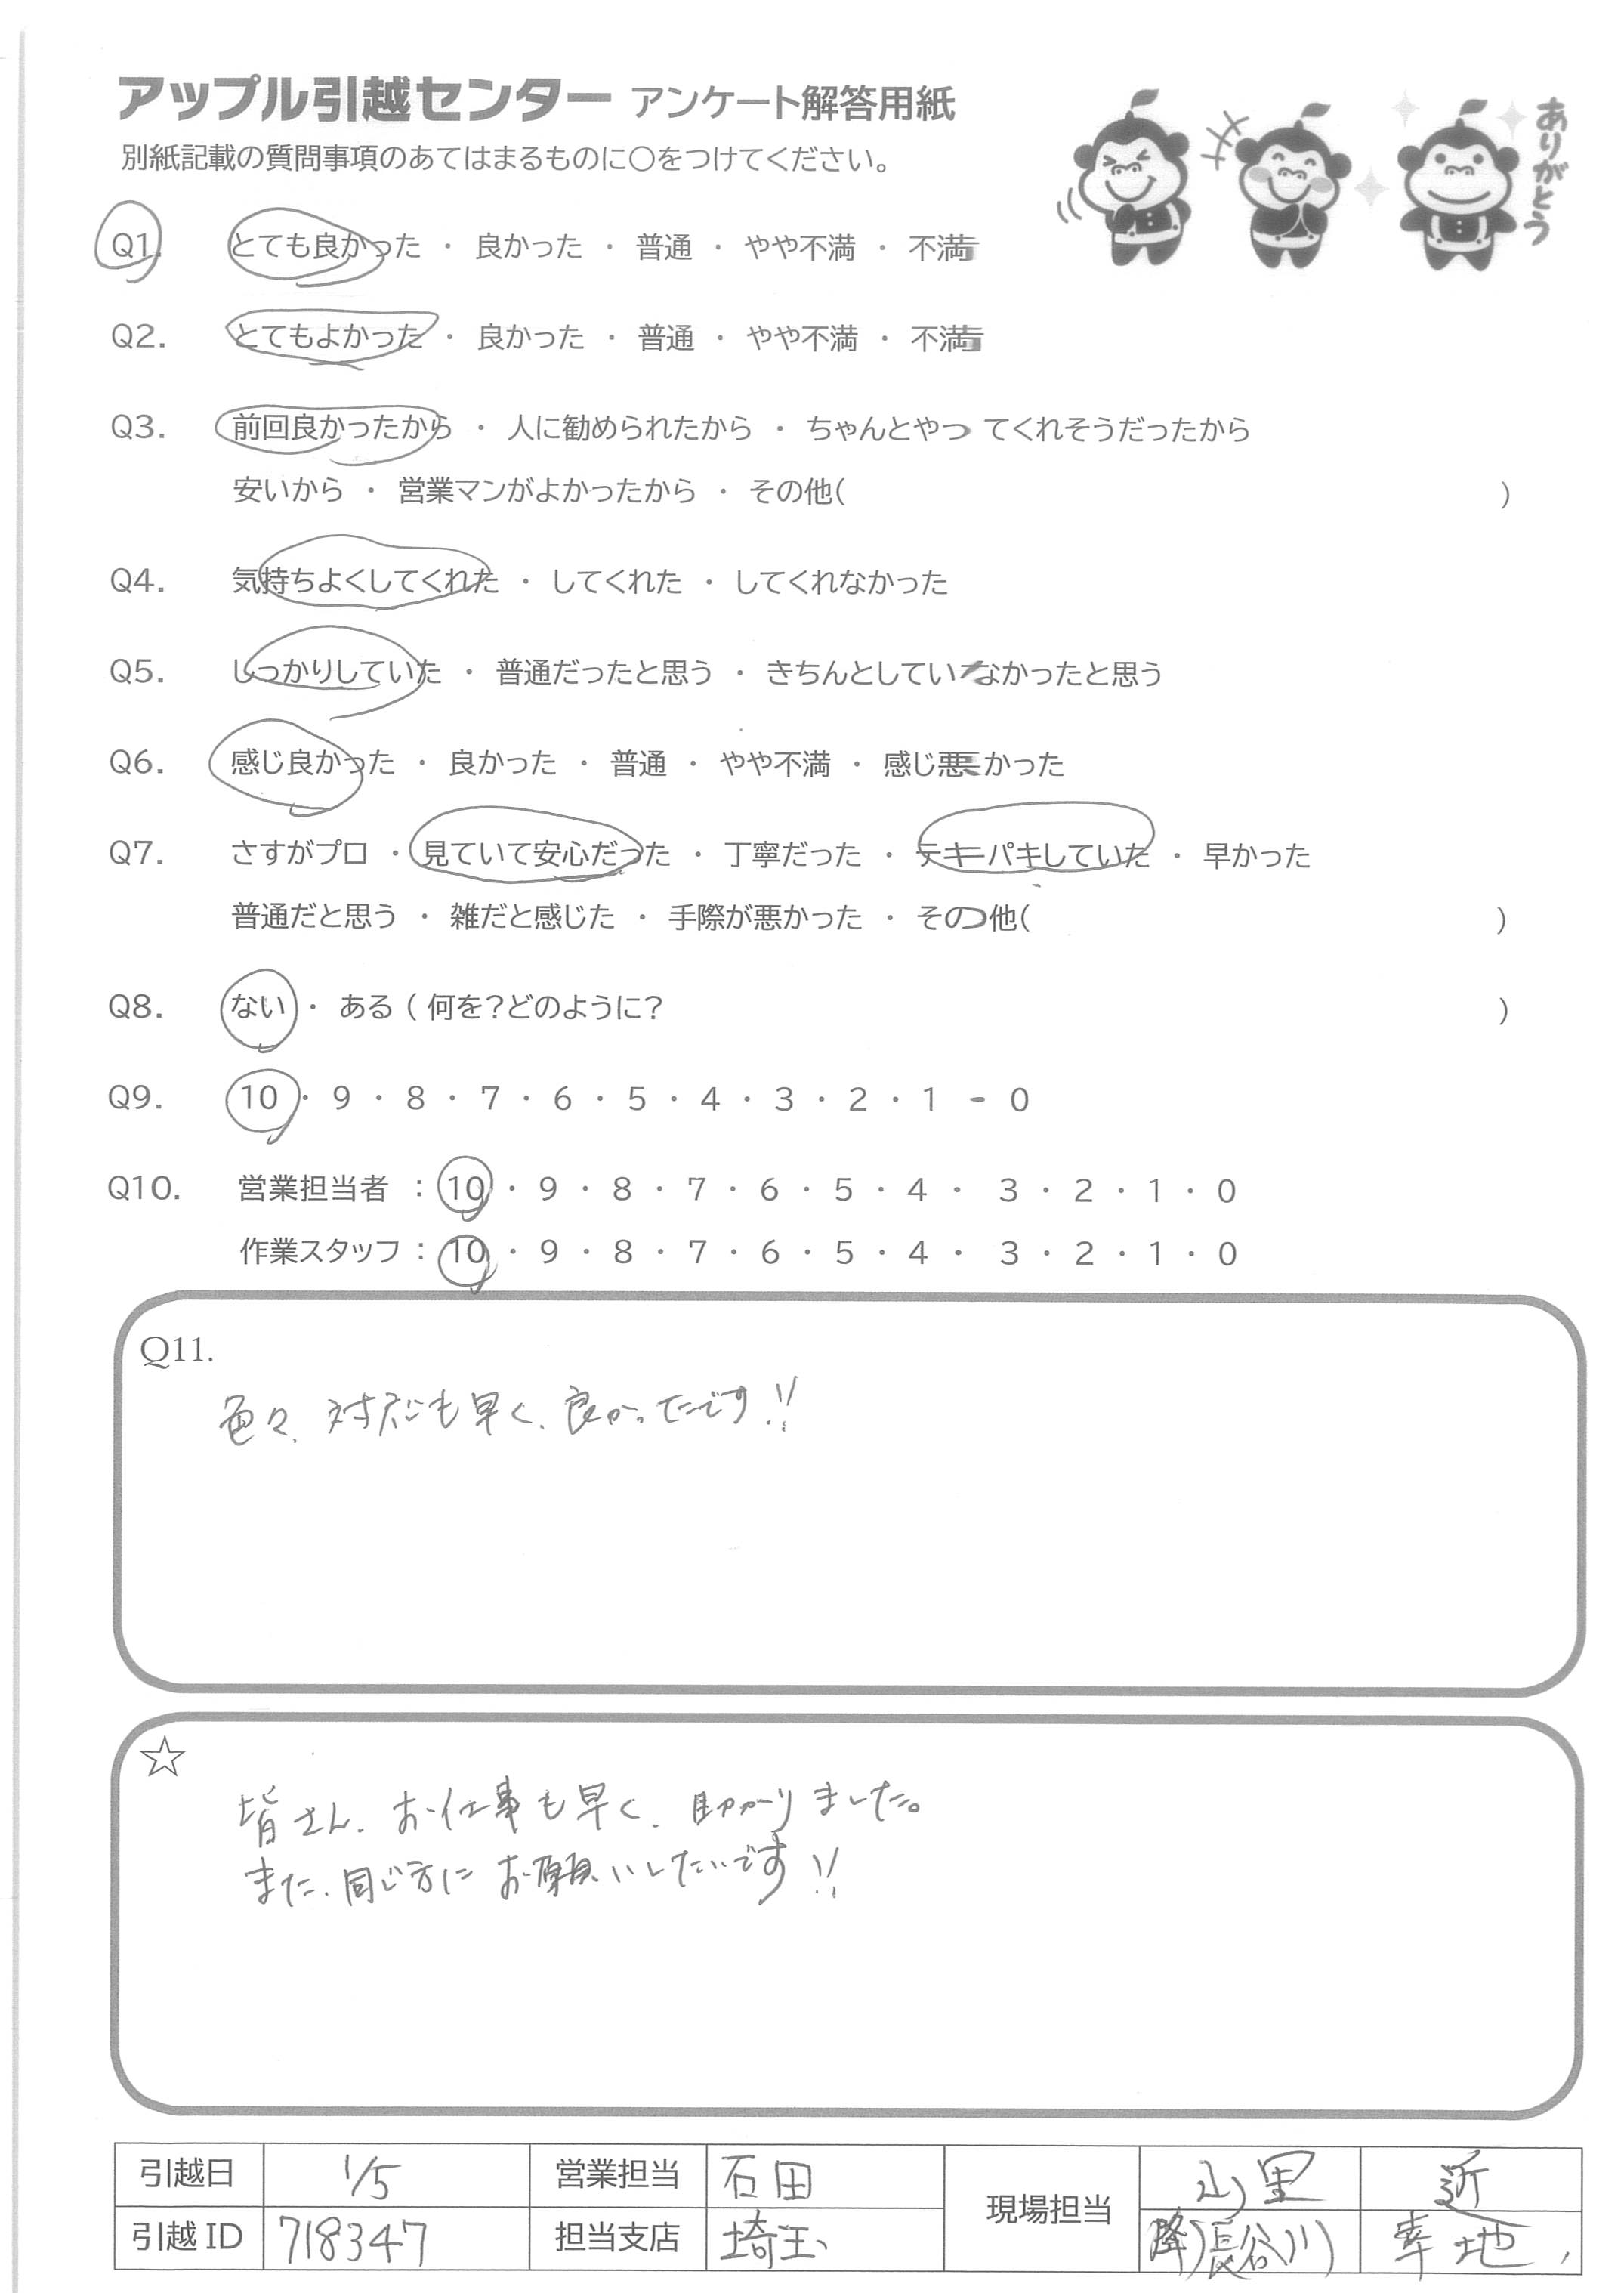 アップル引越センター アンケート解答用紙
別紙記載の質問事項のあてはまるものに○をつけてください。
ありがとう
Q1. とても良かった ・ 良かった ・ 普通 ・ やや不満 ・ 不満
Q2. とてもよかった ・ 良かった ・ 普通 ・ やや不満 ・ 不満
Q3. 前回良かったから ・ 人に勧められたから ・ ちゃんとやってくれそうだったから
安いから ・ 営業マンがよかったから ・ その他( )
Q4. 気持ちよくしてくれた ・ してくれた ・ してくれなかった
Q5. しっかりしていた ・ 普通だったと思う ・ きちんとしていなかったと思う
Q6. 感じ良かった ・ 良かった ・ 普通 ・ やや不満 ・ 感じ悪かった
Q7. さすがプロ ・ 見ていて安心だった ・ 丁寧だった ・ テキパキしていた ・ 早かった
普通だと思う ・ 雑だと感じた ・ 手際が悪かった ・ その他( )
Q8. ない ・ ある ( 何を?どのように? )
Q9. 10 ・ 9 ・ 8 ・ 7 ・ 6 ・ 5 ・ 4 ・ 3 ・ 2 ・ 1 - 0
Q10. 営業担当者 : 10 ・ 9 ・ 8 ・ 7 ・ 6 ・ 5 ・ 4 ・ 3 ・ 2 ・ 1 ・ 0
作業スタッフ : 10 ・ 9 ・ 8 ・ 7 ・ 6 ・ 5 ・ 4 ・ 3 ・ 2 ・ 1 ・ 0
Q11.
色々、対応も早く、良かったです!!
☆
皆さん、お仕事も早く、助かりました。
また、同じ方にお願いしたいです!!
引越日 1/5 営業担当 石田 現場担当 山里 近
引越ID 718347 担当支店 埼玉 降)長谷川 幸地